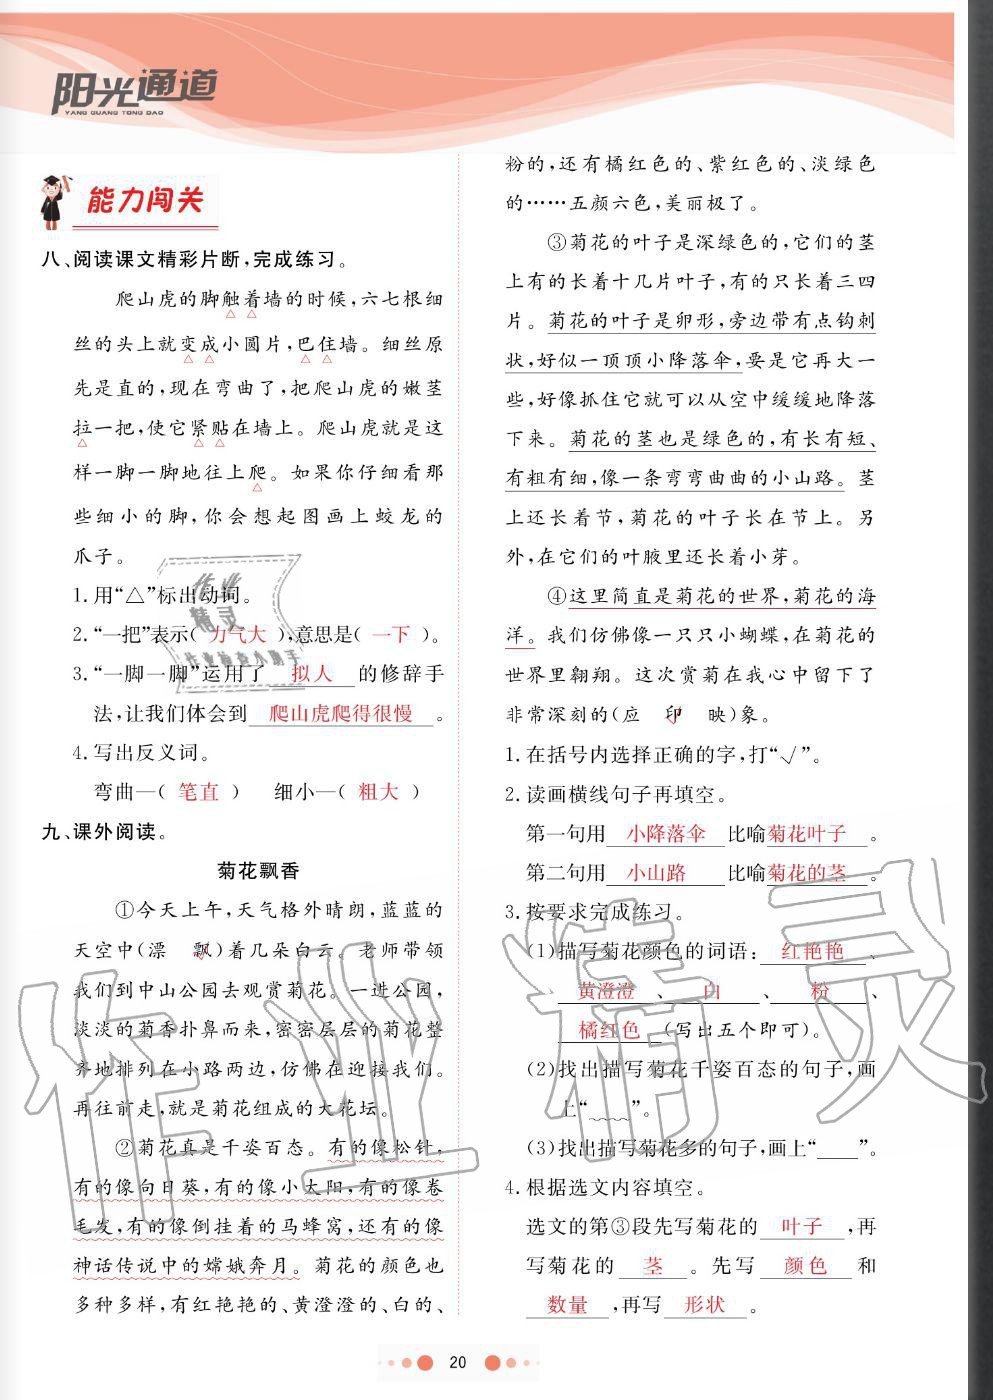 阳光通道
YANG GUANG TONG DAO
能力闯关
八、阅读课文精彩片断,完成练习。
爬山虎的脚触着墙的时候,六七根细
丝的头上就变成小圆片,巴住墙。细丝原
先是直的,现在弯曲了,把爬山虎的嫩茎
拉一把,使它紧贴在墙上。爬山虎就是这
样一脚一脚地往上爬。如果你仔细看那
些细小的脚,你会想起图画上蛟龙的
爪子。
1.用“△”标出动词。
2.“一把”表示( 力气大 ),意思是( 一下 )。
3.“一脚一脚”运用了 拟人 的修辞手
法,让我们体会到 爬山虎爬得很慢 。
4.写出反义词。
弯曲—( 笔直 ) 细小—( 粗大 )
九、课外阅读。
菊花飘香
①今天上午,天气格外晴朗,蓝蓝的
天空中(漂 飘)着几朵白云。老师带领
我们到中山公园去观赏菊花。一进公园,
淡淡的菊香扑鼻而来,密密层层的菊花整
齐地排列在小路两边,仿佛在迎接我们。
再往前走,就是菊花组成的大花坛。
②菊花真是千姿百态。有的像松针,
有的像向日葵,有的像小太阳,有的像卷
毛发,有的像倒挂着的马蜂窝,还有的像
神话传说中的嫦娥奔月。菊花的颜色也
多种多样,有红艳艳的、黄澄澄的、白的、
粉的,还有橘红色的、紫红色的、淡绿色
的……五颜六色,美丽极了。
③菊花的叶子是深绿色的,它们的茎
上有的长着十几片叶子,有的只长着三四
片。菊花的叶子是卵形,旁边带有点钩刺
状,好似一顶顶小降落伞,要是它再大一
些,好像抓住它就可以从空中缓缓地降落
下来。菊花的茎也是绿色的,有长有短、
有粗有细,像一条弯弯曲曲的小山路。茎
上还长着节,菊花的叶子长在节上。另
外,在它们的叶腋里还长着小芽。
④这里简直是菊花的世界,菊花的海
洋。我们仿佛像一只只小蝴蝶,在菊花的
世界里翱翔。这次赏菊在我心中留下了
非常深刻的(应 印 映)象。
1.在括号内选择正确的字,打“√”。
2.读画横线句子再填空。
第一句用 小降落伞 比喻菊花叶子 。
第二句用 小山路 比喻菊花的茎 。
3.按要求完成练习。
(1)描写菊花颜色的词语: 红艳艳 、
黄澄澄 、 白 、 粉 、
橘红色 (写出五个即可)。
(2)找出描写菊花千姿百态的句子,画
上“﹏﹏”。
(3)找出描写菊花多的句子,画上“____”。
4.根据选文内容填空。
选文的第③段先写菊花的 叶子 ,再
写菊花的 茎 。先写 颜色 和
数量 ,再写 形状 。
20
作业精灵
作业精灵
作业检查小助手